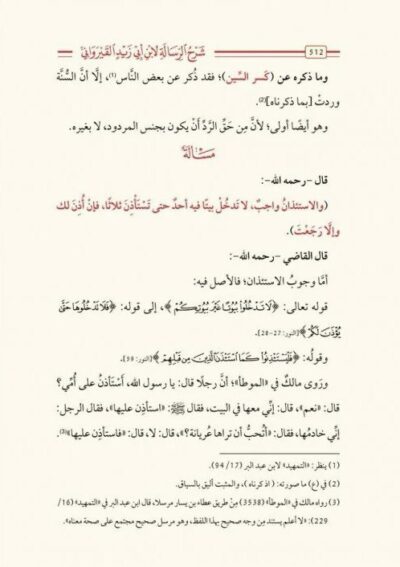 512
شَرْحُ الرِّسَالَةِ لابْنِ أَبِي زَيْدٍ القَيْرَوَانِيِّ
وما ذكره عن (كَسر السِّين)؛ فقد ذُكر عن بعض النَّاس(1)، إلَّا أنَّ السُّنَّة
وردتْ [بما ذكرناه](2).
وهو أيضًا أولى؛ لأنَّ مِن حَقِّ الرَّدِّ أنْ يكون بجنس المردود، لا بغيره.
مَسْأَلَةٌ
قال -رحمه الله-:
(والاستئذانُ واجبٌ، لا تَدخُلْ بيتًا فيه أحدٌ حتى تَسْتَأْذِنَ ثلاثًا، فإنْ أُذِنَ لك
وإلَّا رَجَعْتَ).
قال القاضي -رحمه الله-:
أمَّا وجوبُ الاستئذان؛ فالأصل فيه:
قوله تعالى: ﴿لَا تَدْخُلُوا بُيُوتًا غَيْرَ بُيُوتِكُمْ﴾، إلى قوله: ﴿فَلَا تَدْخُلُوهَا حَتَّى
يُؤْذَنَ لَكُمْ﴾ [النور: 27-28].
وقولُه: ﴿فَلْيَسْتَأْذِنُوا كَمَا اسْتَأْذَنَ الَّذِينَ مِن قَبْلِهِمْ﴾ [النور: 59].
ورَوى مالكٌ في «الموطأ»؛ أنَّ رجلًا قال: يا رسول الله، أَسْتَأذنُ على أُمِّي؟
قال: «نعم»، قال: إنِّي معها في البيت، فقال ﷺ: «استأذِن عليها»، فقال الرجل:
إنِّي خادمُها، فقال: «أتُحبُّ أن تراها عُريانة؟»، قال: لا، قال: «فاستأذِن عليها»(3).
(1) ينظر: «التمهيد» لابن عبد البر (17/ 94).
(2) في (ع) ما صورته: (اذكرناه)، والمثبت أليق بالسياق.
(3) رواه مالك في «الموطأ» (3538) مِن طريق عطاء بن يسار مرسلا، قال ابن عبد البر في «التمهيد» (16/
229): «لا أعلم يستند مِن وجه صحيح بهذا اللفظ، وهو مرسل صحيح مجتمع على صحة معناه».